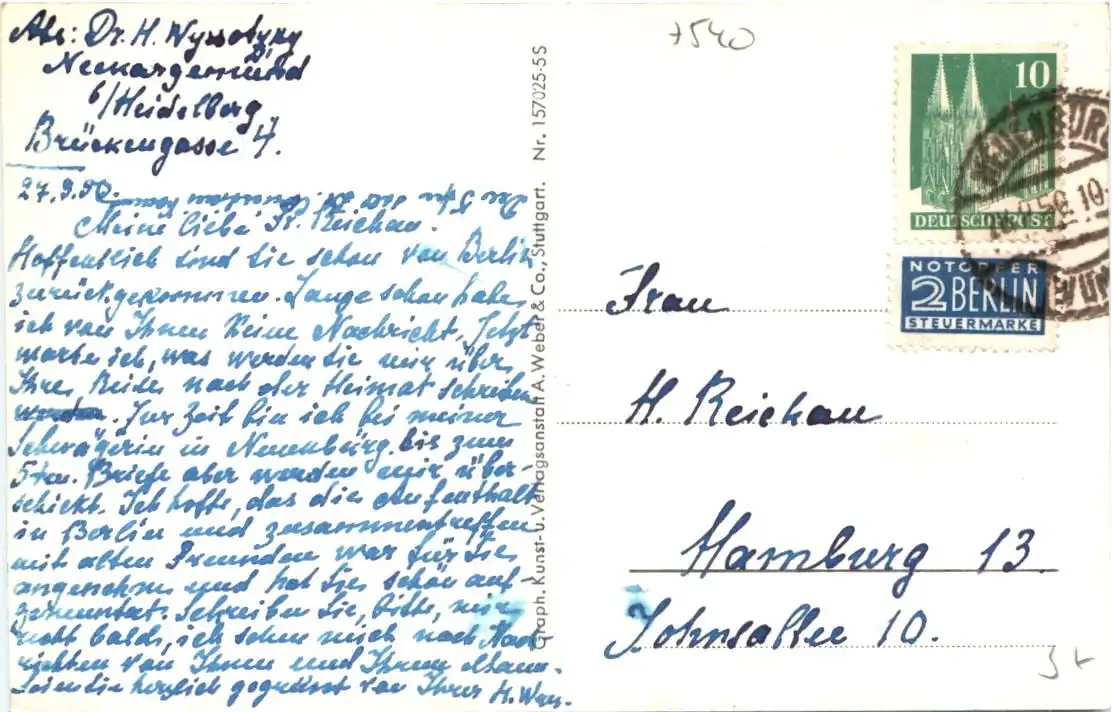 Abs: Dr. H. Wyssotzky
Neckargemünd
b/Heidelberg
Brückengasse 4.
27.9.50.
Meine liebe Fr. Reichau.
Hoffentlich sind Sie schon von Berlin
zurückgekommen. Lange schon habe
ich von Ihnen keine Nachricht. Jetzt
warte ich, was werden Sie mir über
Ihre Reise nach der Heimat schreiben
. Zur Zeit bin ich bei meiner
Schwägerin in Neuenbürg bis zum
5ten. Briefe aber werden mir über-
schickt. Ich hoffe, das die Aufenthalt
in Berlin und zusammentreffen
mit alten Freunden war für Sie
angenehm und hat Sie schön auf-
gemuntert. Schreiben Sie, bitte, mir
recht bald, ich sehne mich nach Nach
richten von Ihnen und Ihrem Mann.
Seien Sie herzlich gegrüsst von Ihrer H. Wyss.
Graph. Kunst- u. Verlagsanstalt A. Weber & Co., Stuttgart. Nr. 157025-5S
7540
10
DEUTSCHE POST
NOTOPFER
2 BERLIN
STEUERMARKE
Frau
H. Reichau
Hamburg 13.
Johnsallee 10.